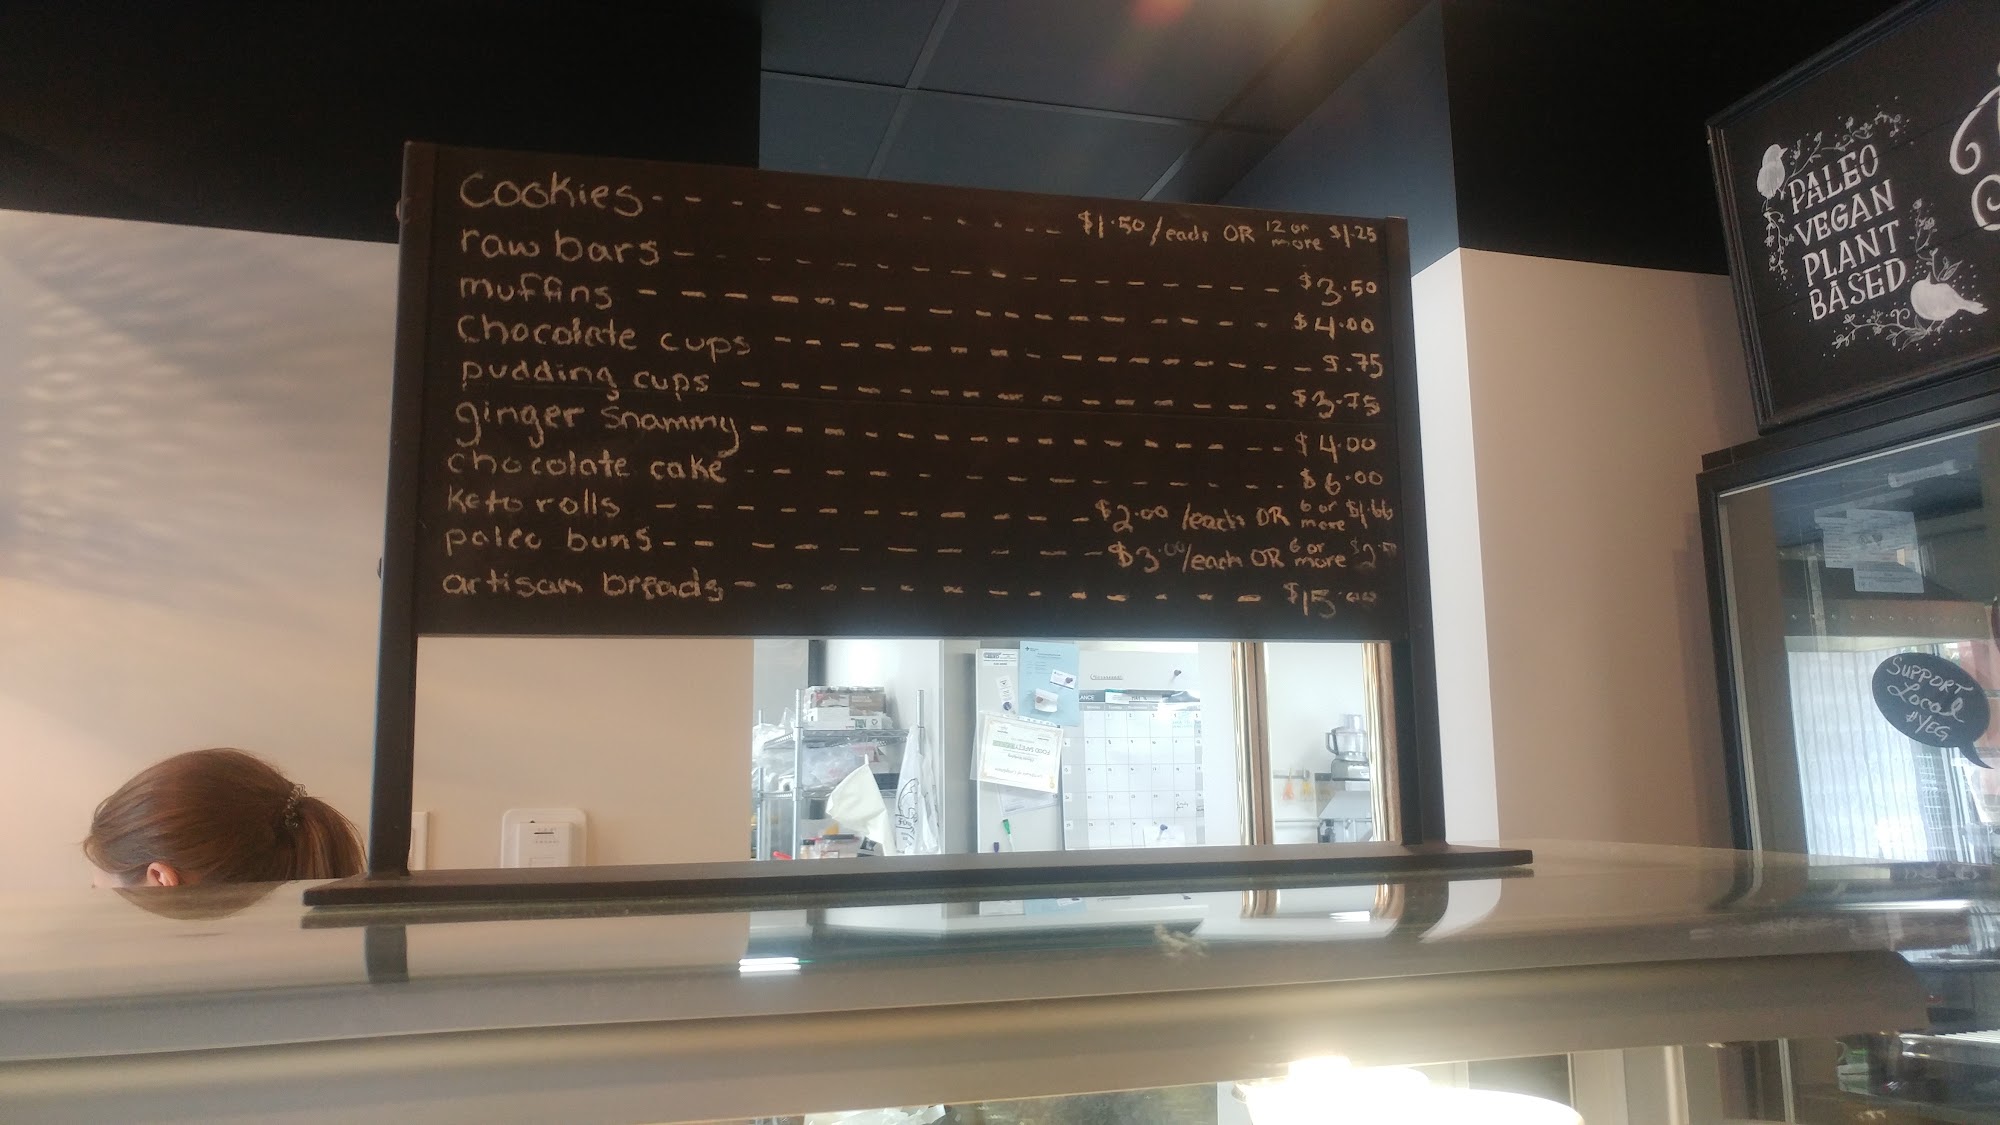 Cookies - - - - - - - - - - - $1.50/each OR 12 or more $1.25
raw bars - - - - - - - - - - - - - - $3.50
muffins - - - - - - - - - - - - - - $4.00
Chocolate cups - - - - - - - - - - - - - $.75
pudding cups - - - - - - - - - - - - - $3.75
ginger snammy - - - - - - - - - - - - - $4.00
chocolate cake - - - - - - - - - - - - - $6.00
keto rolls - - - - - - - - - - $2.00/each OR 6 or more $1.66
paleo buns - - - - - - - - - - $3.00/each OR 6 or more
artisan breads - - - - - - - - - - - - $15.00
PALEO
VEGAN
PLANT
BASED
SUPPORT
Local
#YEG